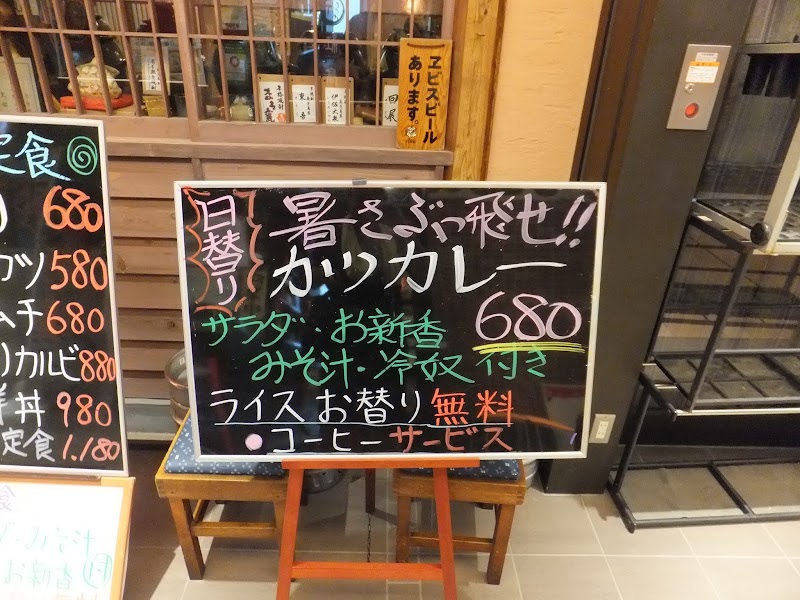 ヱビスビール
あります。
定食
680
カツ 580
ムチ 680
カルビ 880
丼 980
定食 1.180
みそ汁
お新香
日替り
暑さぶっ飛せ!!
カツカレー
680
サラダ・お新香
みそ汁・冷奴 付き
ライスお替り無料
コーヒーサービス